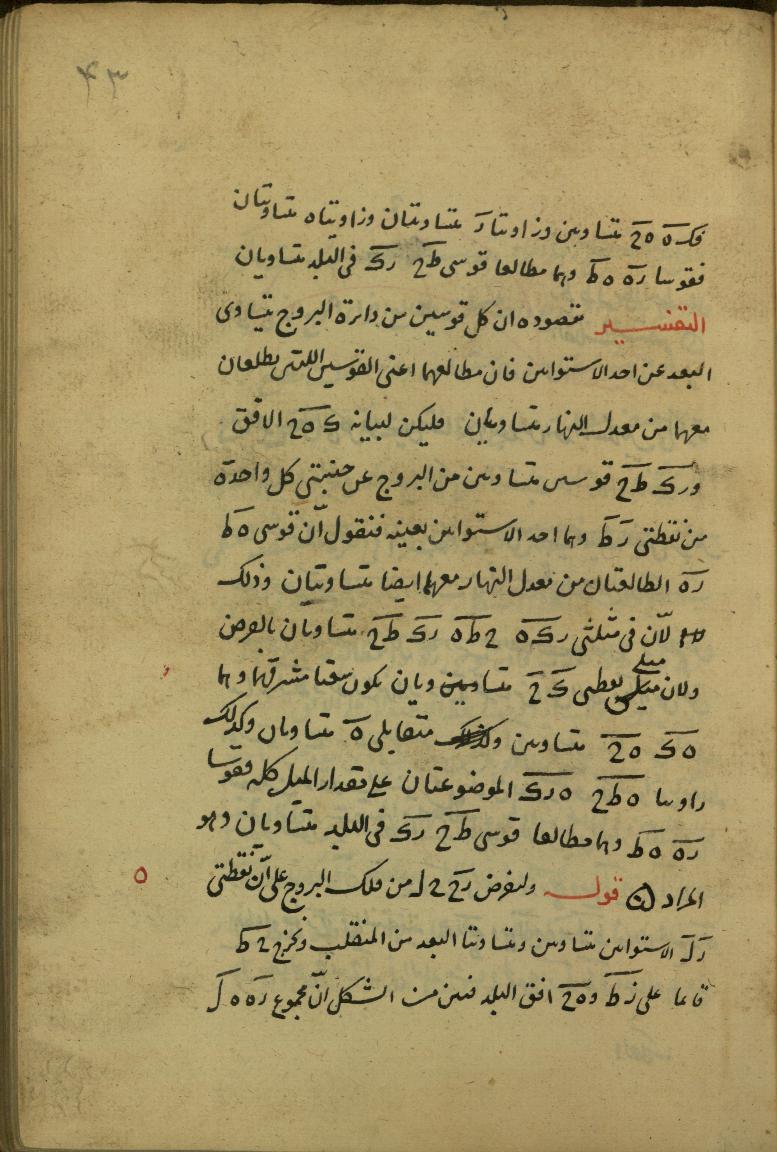 ٤٣
فكـ ه ه ح متساويين وزاويتا ر متساويتان وزاويتا ه متساويتان
فقوسا ر ه ه ط وهما مطالعا قوسى ط ح ر ك فى البلد متساويان
التفسير مقصوده ان كل قوسين من دايرة البروج متساوى
البعد عن احد الاستوايين فان مطالعهما اعنى القوسين اللتين يطلعان
معهما من معدل النهار متساويان فليكن لبيانه ك ه ح الافق
و ر ك ط ح قوسين متساويين من البروج عن جنبتى كل واحدة
من نقطتى ر ط وهما احد الاستوايين بعينه فنقول انّ قوسى ه ط
ر ه الطالعتان من معدل النهار معهما ايضا متساويتان وذلك
لانّ فى مثلثى ر ك ه ح ط ه ر ك ط ح متساويان بالفرض
ولان ميلى نقطتى ك ح متساويين ويان يكون سعتا مشرقهما وهما
ه ك ه ح متساويين و متقابلى ه متساويان وكذلك
زاويتا ه ط ح ه ر ك الموضوعتان على مقدار الميل كله فقوسا
ر ه ه ط وهما مطالعا قوسى ط ح ر ك فى البلد متساويان وهو
المراد ه قوله ولنفرض ر ح ح ل من فلك البروج على انّ نقطتى
ر ل الاستوايين متساويين ومتساويتا البعد من المنقلب ونخرج ح ط
قايما على ر ط و ه ح افق البلد فبين من الشكل انّ مجموع ر ه ه ل